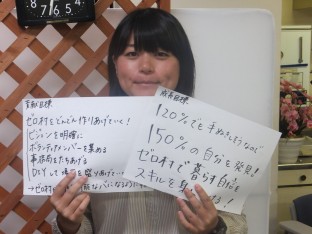 8 7 6 5 4
貢献目標
ゼロ村をどんどん作りあげていく!
ビジョンを明確に
ボランティアメンバーを集める
事務局をたちあげる
DIYして場を盛りあげて
→ゼロ村
成長目標
120%でも手ぬきそうなので
150%の自分を発見!
ゼロ村で暮らす自信と
スキルを身